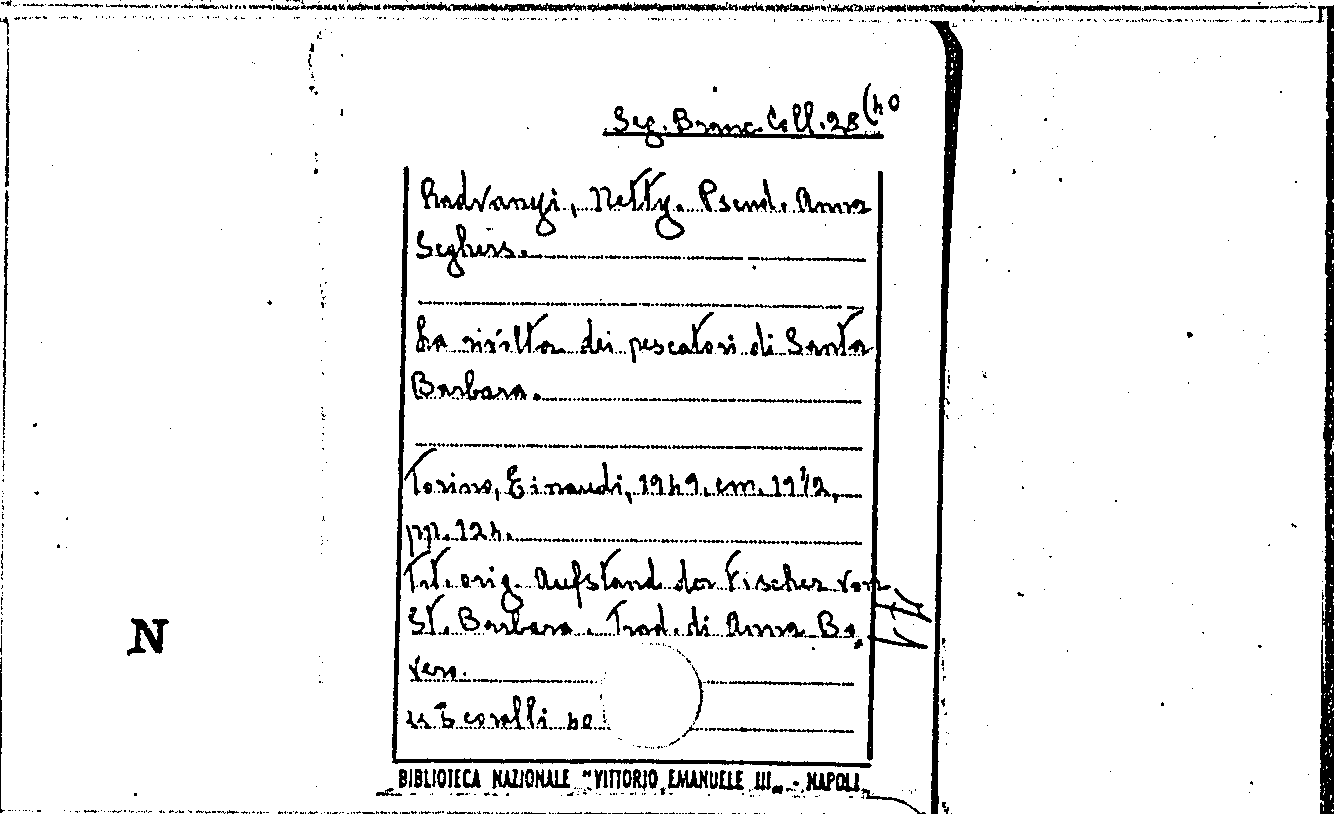 Seg. Branc. Coll. 28 (40
Radvanyi, Netty. Pseud. Anna
Seghers.
La rivolta dei pescatori di Santa
Barbara.
Torino, Einaudi, 1949. cm. 19 1/2,
pp. 124.
Tit. orig. Aufstand der Fischer von
St. Barbara. Trad. di Anna Bo
vero.
I coralli 40
N
BIBLIOTECA NAZIONALE "VITTORIO EMANUELE III„ - NAPOLI